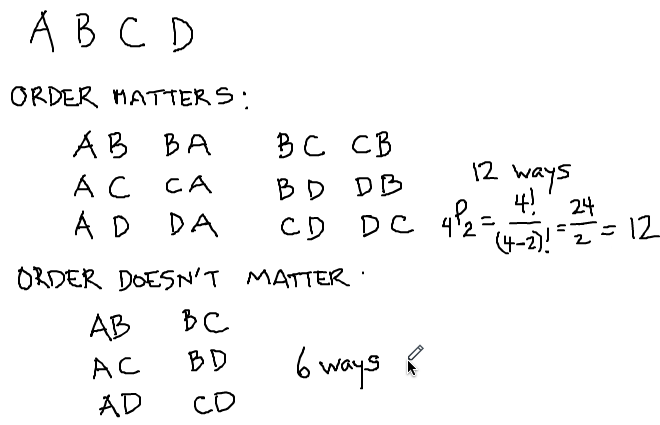 A B C D
ORDER MATTERS:
AB BA BC CB
AC CA BD DB
AD DA CD DC
12 ways
4P2 = 4!/(4-2)! = 24/2 = 12
ORDER DOESN'T MATTER.
AB BC
AC BD
AD CD
6 ways